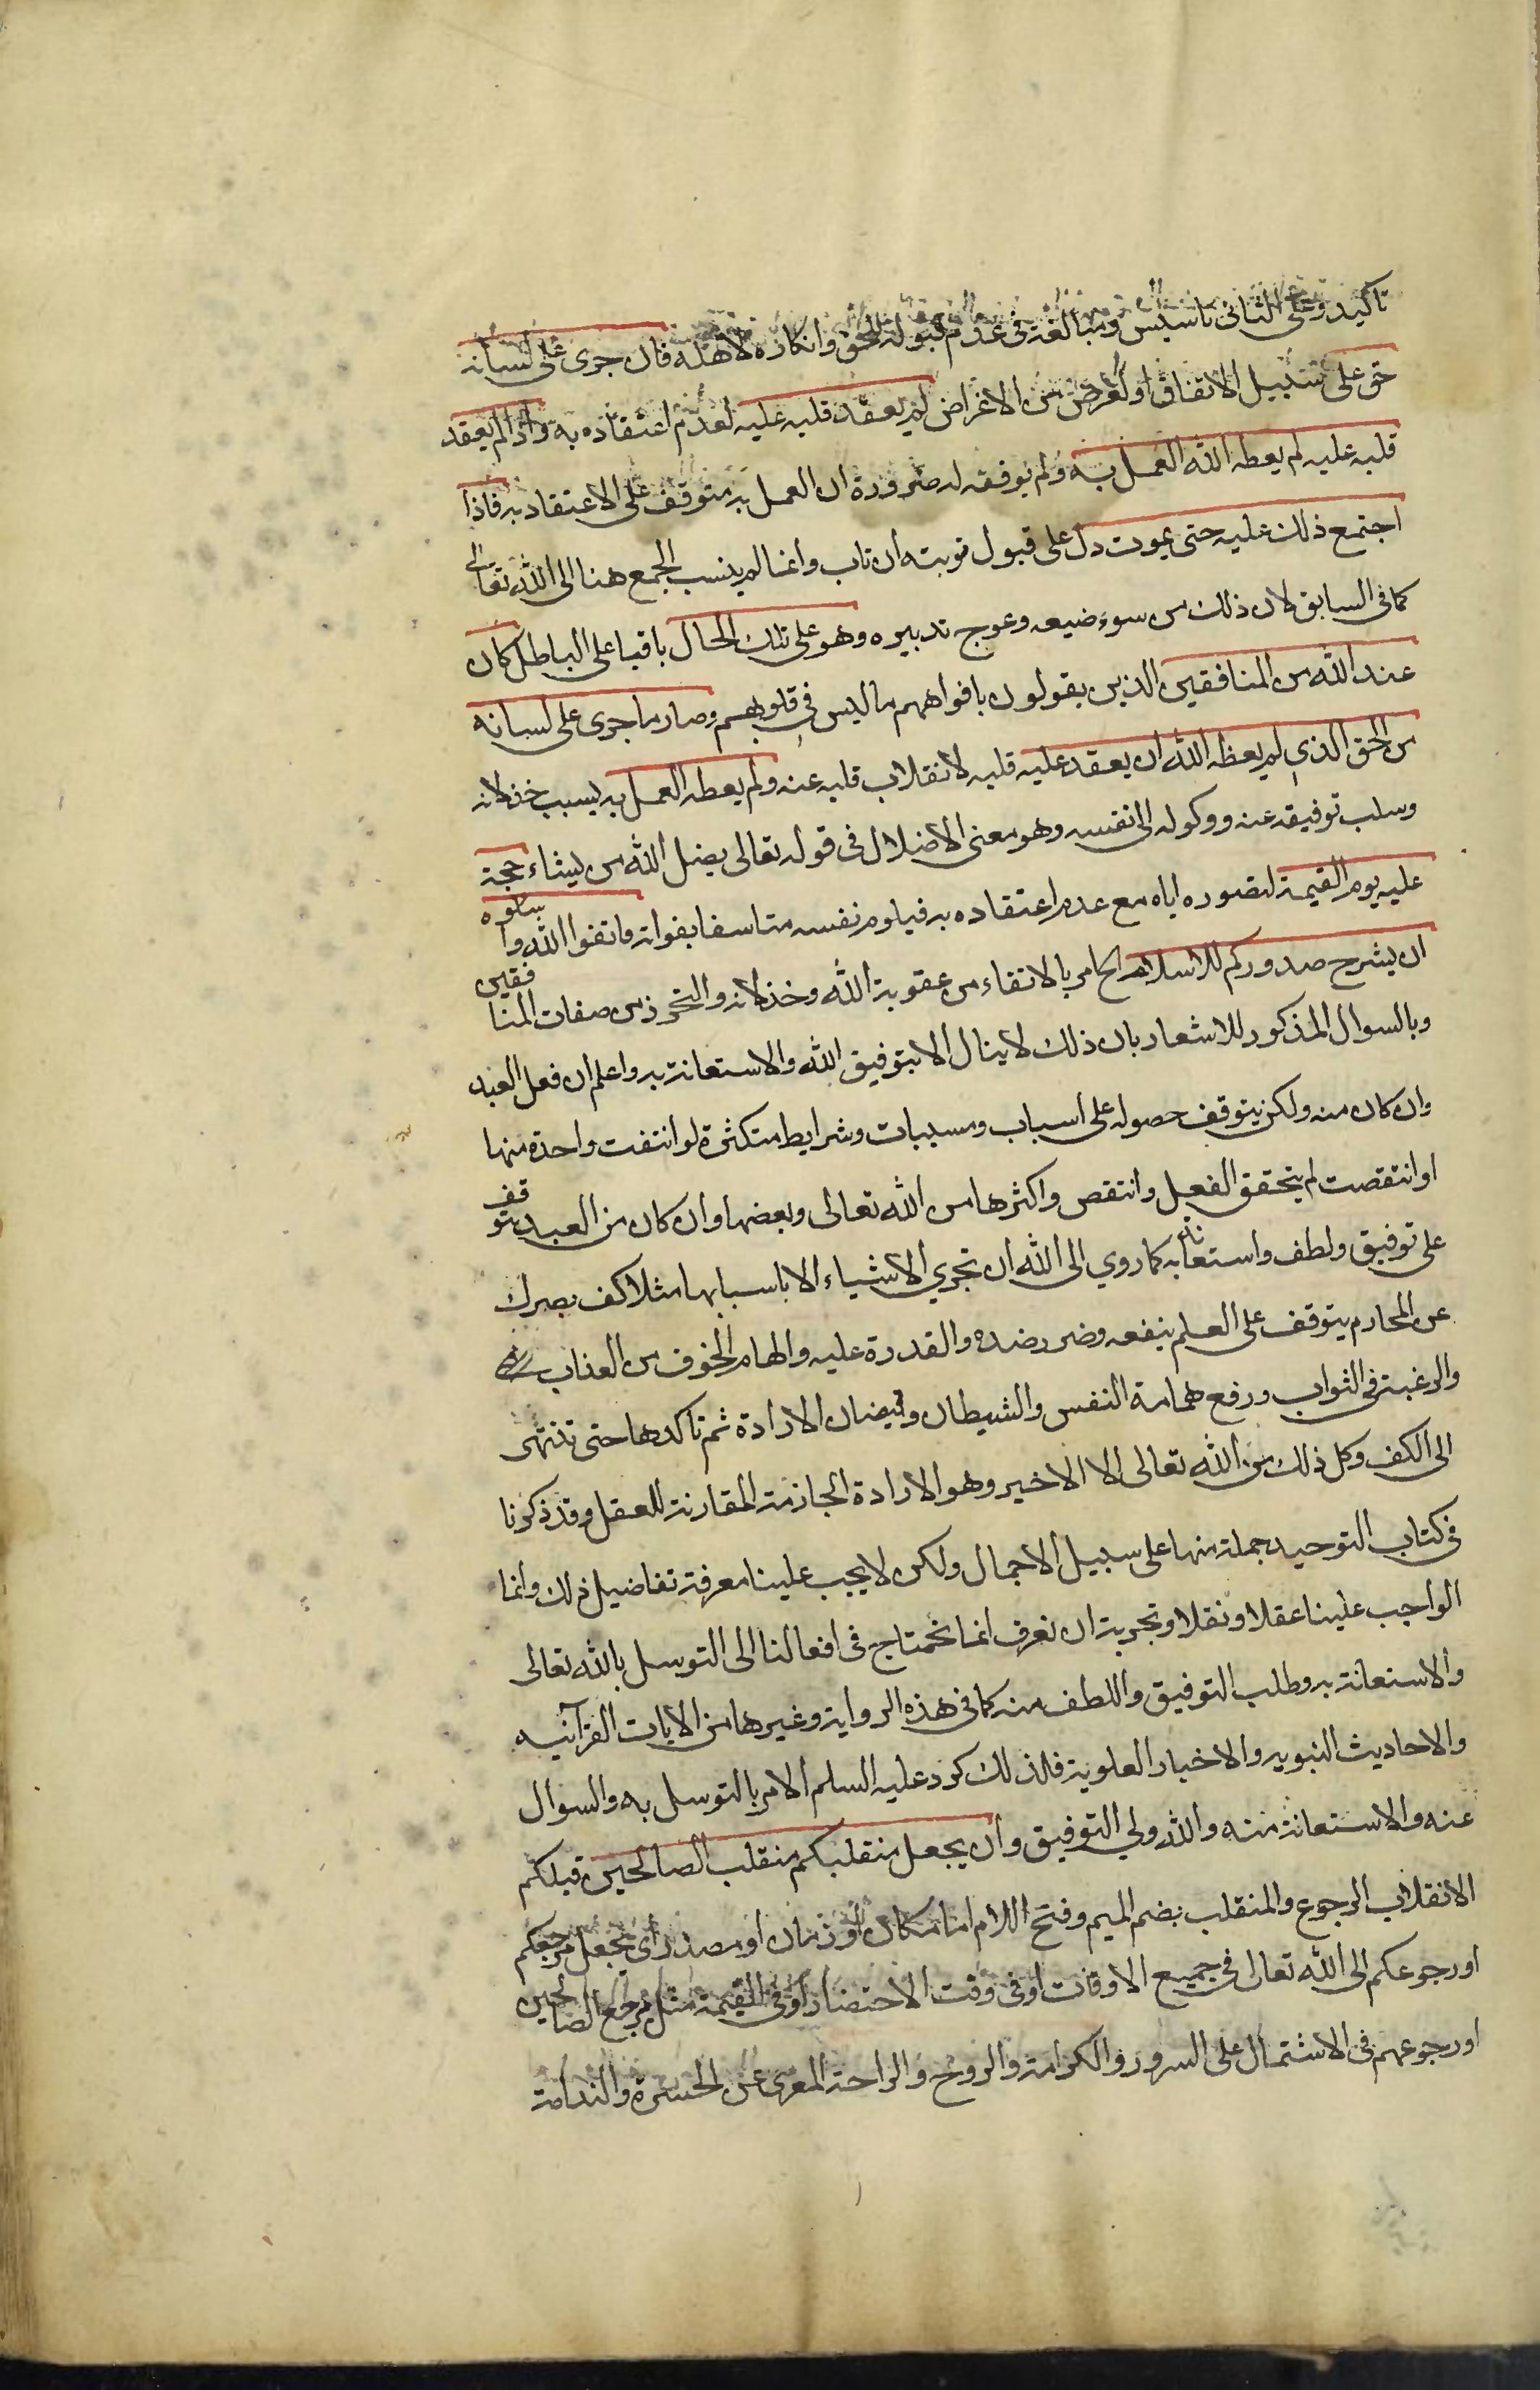 تاكيد وعلى الثانى تاسيس ومبالغة فى عدم قبوله للحق وانكاره لاهله فان جرى على لسانه
حق على سبيل الاتفاق او لغرض من الاغراض لم يعقد قلبه عليه لعدم اعتقاده به واذا لم يعقد
قلبه عليه لم يعطه الله العمل به ولم يوفقه له ضرورة ان العمل به متوقف على الاعتقاد به فاذا
اجتمع ذلك عليه حتى يموت دل على قبول توبته ان تاب وانما لم ينسب الجمع هنا الى الله تعالى
كما فى السابق لان ذلك من سوء ضيعه وعوج تدبيره وهو على تلك الحال باقيا على الباطل كان
عند الله من المنافقين الذين يقولون بافواههم ما ليس فى قلوبهم وصار ما جرى على لسانه
من الحق الذى لم يعطه الله ان يعقد عليه قلبه لانقلاب قلبه عنه ولم يعطه العمل به بسبب خذلانه
وسلب توفيقه عنه ووكوله الى نفسه وهو معنى الاضلال فى قوله تعالى يضل الله من يشاء حجة
عليه يوم القيمة لتصوره اياه مع عدم اعتقاده به فيلوم نفسه متاسفا بفواته فاتقوا الله وسلوه
ان يشرح صدوركم للاسلام الخ امر بالاتقاء من عقوبة الله وخذلانه والتحرز من صفات المنافقين
وبالسوال المذكور للاشعار بان ذلك لا ينال الا بتوفيق الله والاستعانة به واعلم ان فعل العبد
وان كان منه ولكن يتوقف حصوله على اسباب ومسببات وشرايط متكثرة لو انتفت واحدة منها
او انتقصت لم يتحقق الفعل وانتقص واكثرها من الله تعالى وبعضها وان كان من العبد يتوقف
على توفيق ولطف واستعانة به كما روي ابى الله ان تجري الاشياء الا باسبابها مثلا كف بصرك
عن المحارم يتوقف على العلم بنفعه وضرر ضده والقدرة عليه والهام الخوف من العذاب
والرغبة فى الثواب ورفع همامة النفس والشيطان وفيضان الارادة ثم تاكدها حتى تنتهى
الى الكف وكل ذلك من الله تعالى الا الاخير وهو الارادة الجازمة المقارنة للعقل وقد ذكرنا
فى كتاب التوحيد جملة منها على سبيل الاجمال ولكن لا يجب علينا معرفة تفاضيل ذلك وانما
الواجب علينا عقلا ونقلا وتجربة ان نعرف انما نحتاج فى افعالنا الى التوسل بالله تعالى
والاستعانة به وطلب التوفيق واللطف منه كما فى هذه الرواية وغيرها من الايات القرآنيه
والاحاديث النبويه والاخبار العلوية فلذلك كرر عليه السلم الامر بالتوسل به والسوال
عنه والاستعانة منه والله ولي التوفيق وان يجعل منقلبكم منقلب الصالحين قبلكم
الانقلاب الرجوع والمنقلب بضم الميم وفتح اللام اما مكان او زمان او مصدر اى يجعل مرجعكم
او رجوعكم الى الله تعالى فى جميع الاوقات او فى وقت الاحتضار او فى القيمة مثل مرجع الصالحين
او رجوعهم فى الاشتمال على السرور والكرامة والروح والراحة المعرى عن الحسرة والندامة